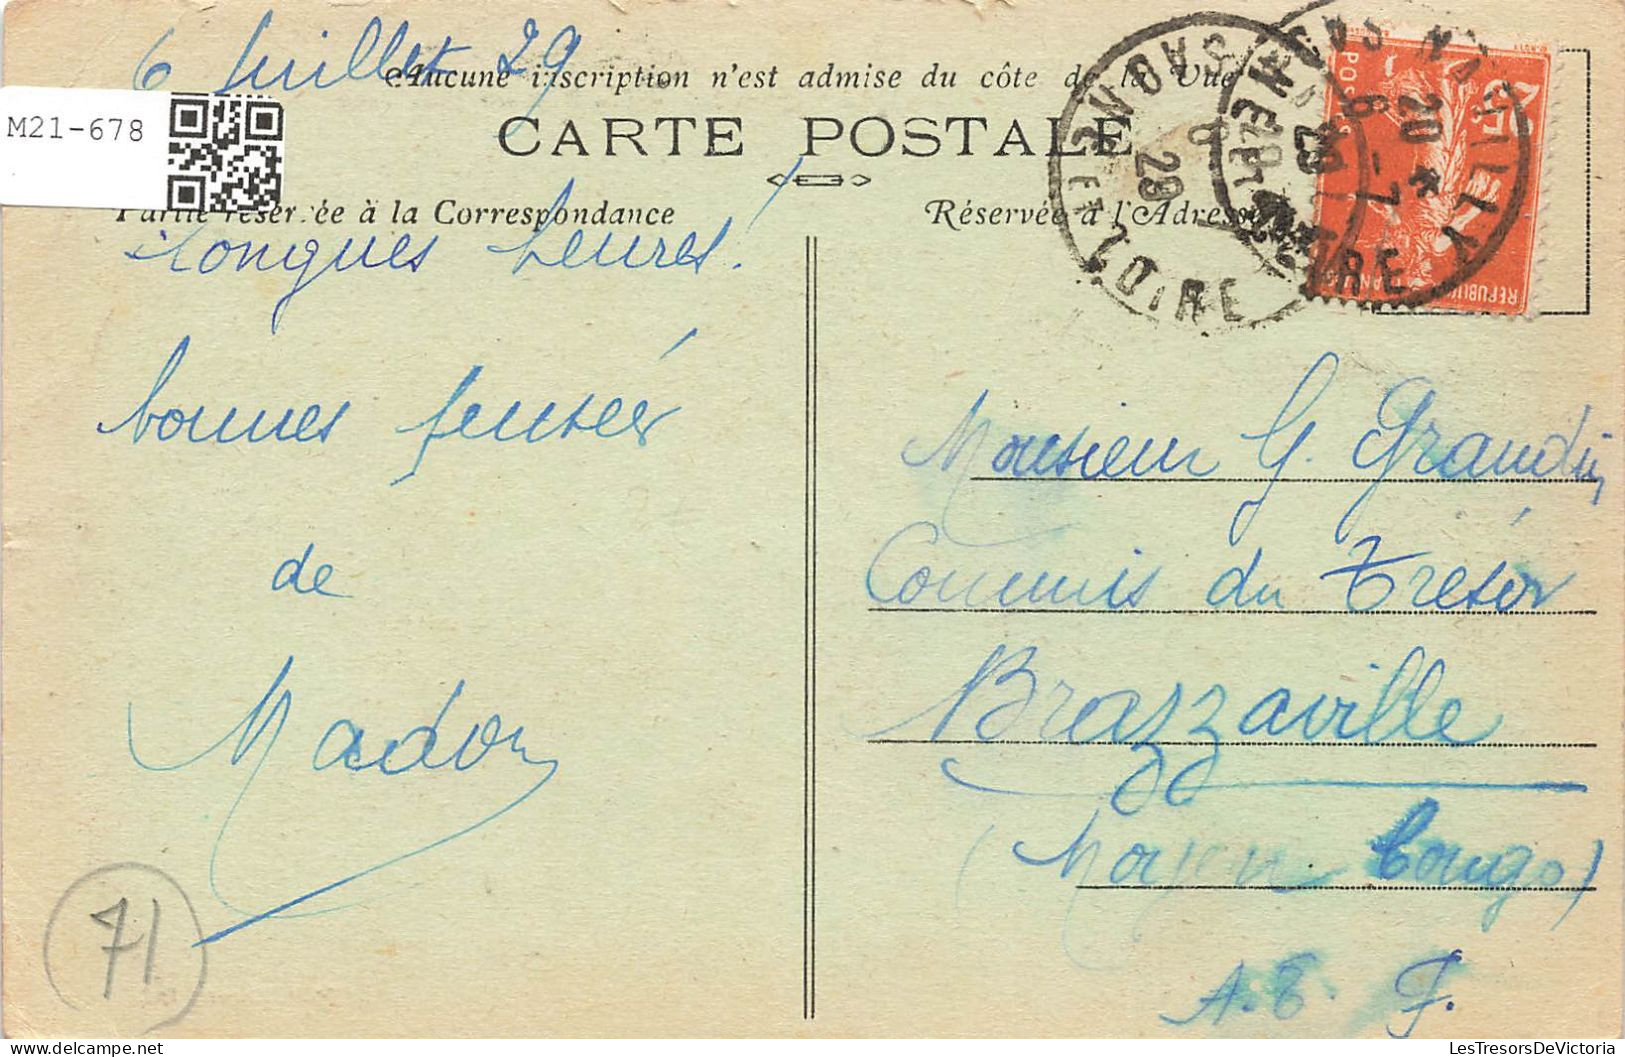 6 Juillet 29
Aucune inscription n'est admise du côte de la Vue
M21-678
CARTE POSTALE
Partie réservée à la Correspondance
Réservée à l'Adresse
longues heures!
bonnes pensées
de
Madon
Monsieur G. Grandin
Commis du Trésor
Brazzaville
(Moyen Congo)
A.E.F.
NAVILLY
SAONE ET LOIRE
20 *
6 - 7
29
POSTES
REPUBLIQUE FRANÇAISE
71
LesTresorsDeVictoria.com